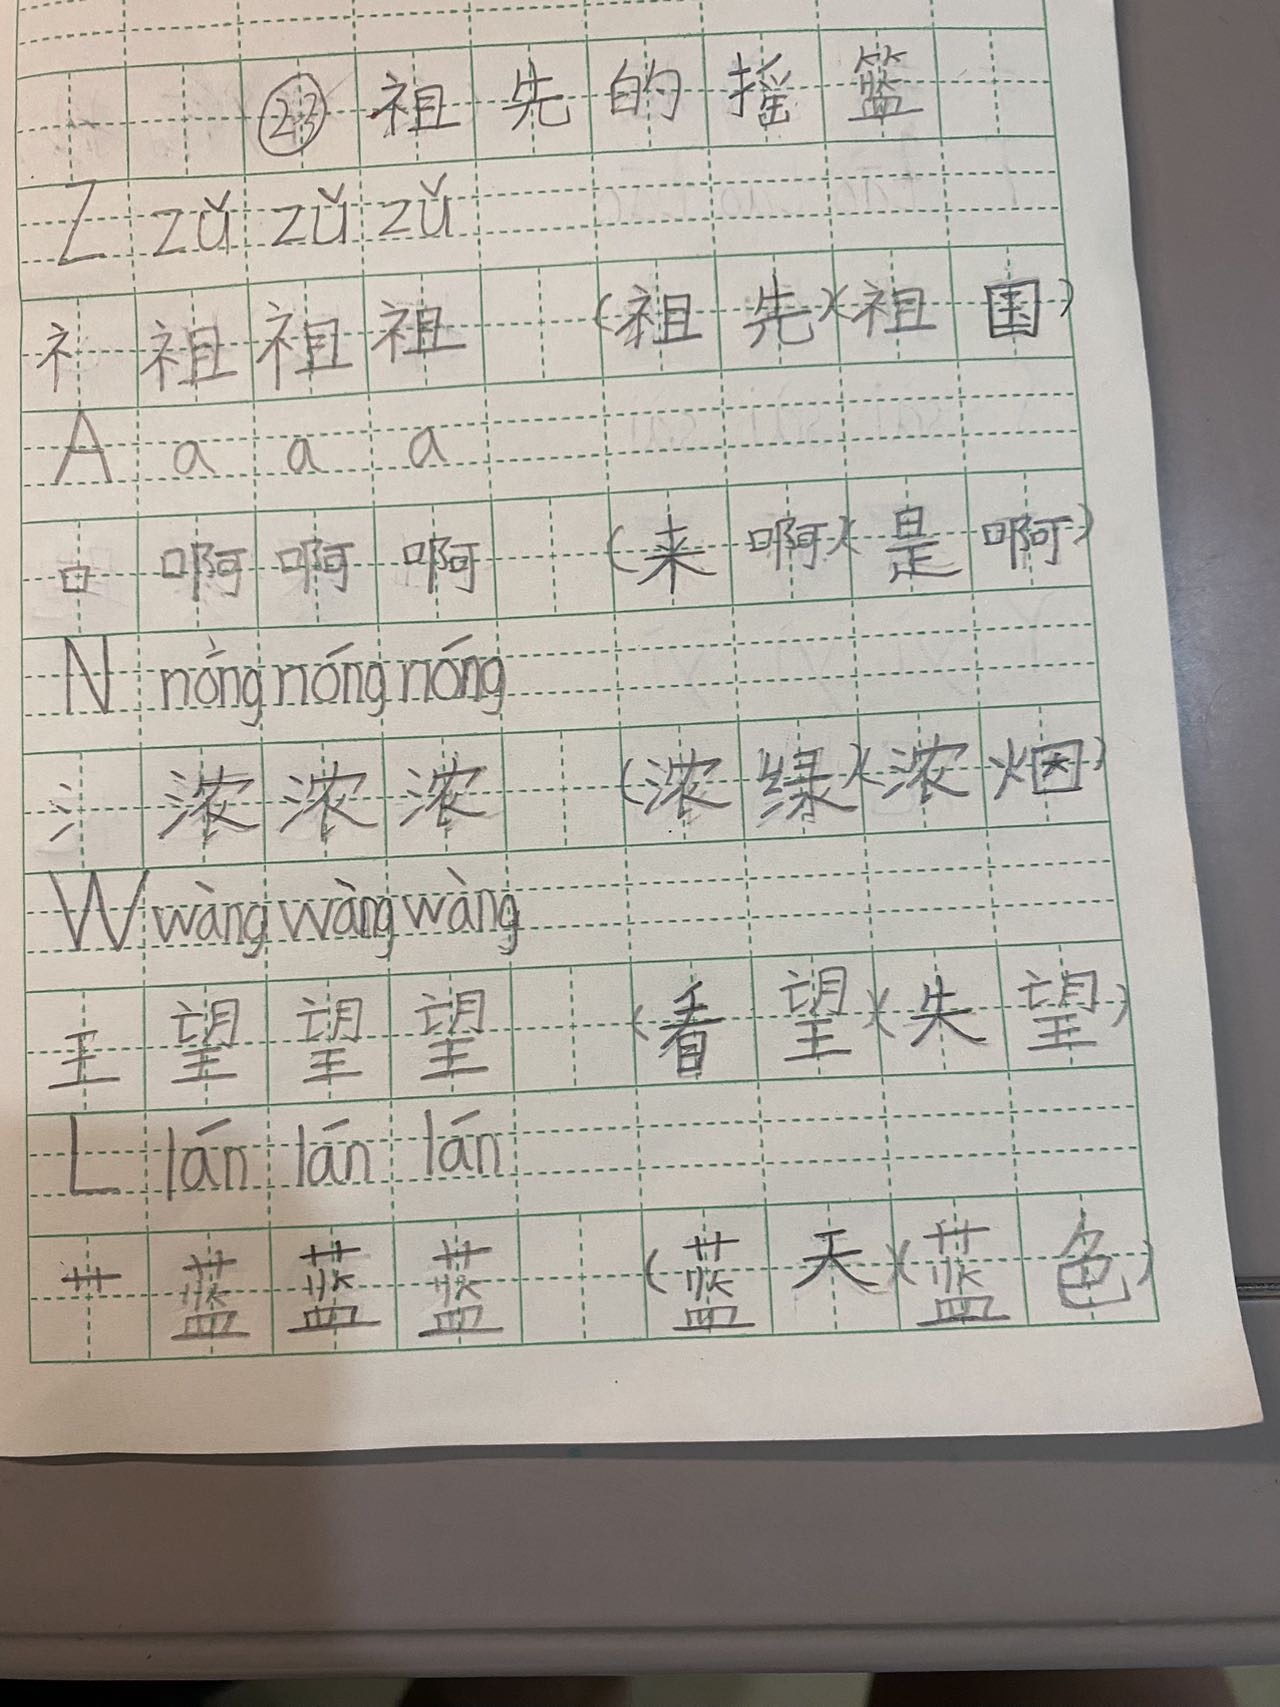 ㉓祖先的摇篮
Z zǔ zǔ zǔ
礻 祖 祖 祖 (祖先)(祖国)
A a a a
口 啊 啊 啊 (来啊)(是啊)
N nòng nóng nóng
氵 浓 浓 浓 (浓绿)(浓烟)
W wàng wàng wàng
王 望 望 望 (看望)(失望)
L lán lán lán
艹 蓝 蓝 蓝 (蓝天)(蓝色)